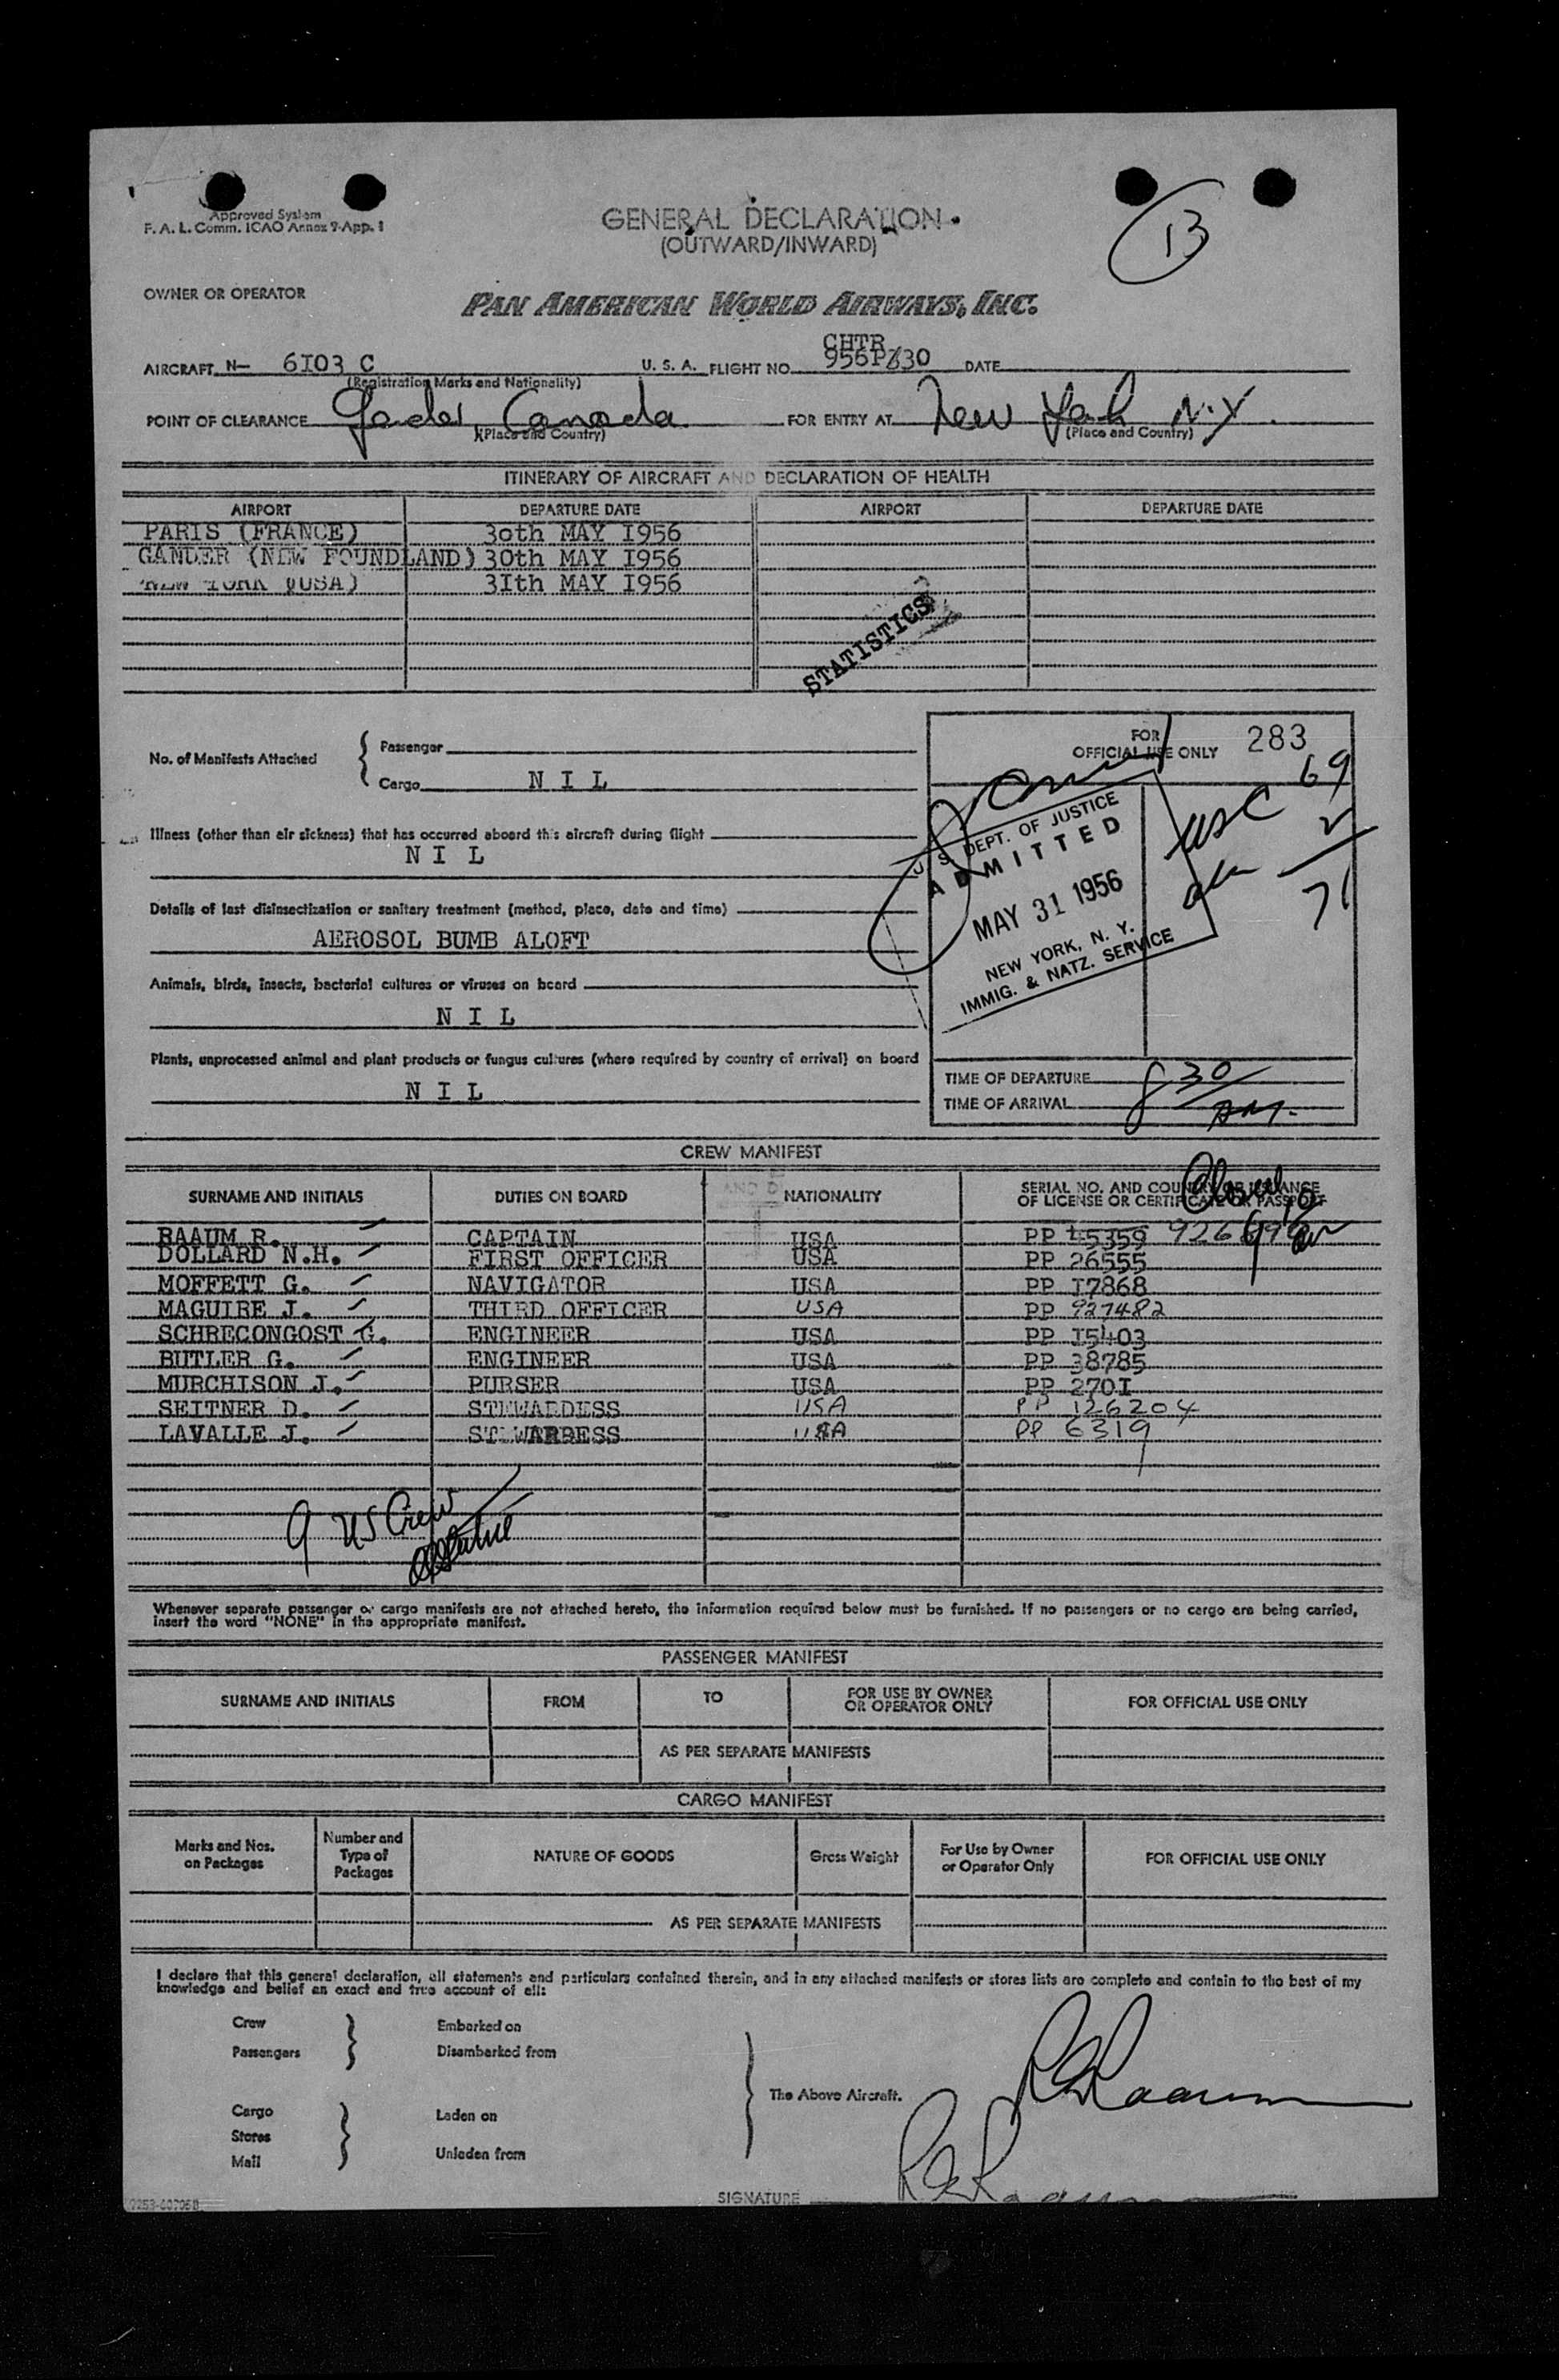 Approved System
F. A. L. Comm. ICAO Annex 9-App. 1
GENERAL DECLARATION
(OUTWARD/INWARD)
13
OWNER OR OPERATOR
PAN AMERICAN WORLD AIRWAYS, INC.
CHTR
AIRCRAFT N- 6I03 C U. S. A. FLIGHT NO. DATE
(Registration Marks and Nationality)
POINT OF CLEARANCE Gander, Canada FOR ENTRY AT New York N.Y.
(Place and Country) (Place and Country)
ITINERARY OF AIRCRAFT AND DECLARATION OF HEALTH
AIRPORT DEPARTURE DATE AIRPORT DEPARTURE DATE
PARIS (FRANCE) 30th MAY I956
GANDER (NEW FOUNDLAND) 30th MAY I956
NEW YORK (USA) 3Ith MAY I956
STATISTICS
No. of Manifests Attached
Passenger
Cargo N I L
FOR
OFFICIAL USE ONLY 283
69
2
71
usc
U. S. DEPT. OF JUSTICE
ADMITTED
MAY 31 1956
NEW YORK, N. Y.
IMMIG. & NATZ. SERVICE
Illness (other than air sickness) that has occurred aboard this aircraft during flight
N I L
Details of last disinsectization or sanitary treatment (method, place, date and time)
AEROSOL BUMB ALOFT
Animals, birds, insects, bacterial cultures or viruses on board
N I L
Plants, unprocessed animal and plant products or fungus cultures (where required by country of arrival) on board
N I L
TIME OF DEPARTURE 8 30
TIME OF ARRIVAL AM.
CREW MANIFEST
SURNAME AND INITIALS DUTIES ON BOARD NATIONALITY SERIAL NO. AND COUNTRY OF ISSUANCE
OF LICENSE OR CERTIFICATE OR PASSPORT
RAAUM R. CAPTAIN USA PP
DOLLARD N.H. FIRST OFFICER USA PP 26555
MOFFETT G. NAVIGATOR USA PP I7868
MAGUIRE J. THIRD OFFICER USA PP 927482
SCHRECONGOST G. ENGINEER USA PP I5403
BUTLER G. ENGINEER USA PP 38785
MURCHISON J. PURSER USA PP 270I
SEITNER D. STEWARDESS USA PP 126204
LAVALLE J. STEWARDESS USA PP 6319
9 US Crew
Whenever separate passenger or cargo manifests are not attached hereto, the information required below must be furnished. If no passengers or no cargo are being carried,
insert the word "NONE" in the appropriate manifest.
PASSENGER MANIFEST
SURNAME AND INITIALS FROM TO FOR USE BY OWNER
OR OPERATOR ONLY FOR OFFICIAL USE ONLY
AS PER SEPARATE MANIFESTS
CARGO MANIFEST
Marks and Nos.
on Packages
Number and
Type of
Packages
NATURE OF GOODS
Gross Weight
For Use by Owner
or Operator Only
FOR OFFICIAL USE ONLY
AS PER SEPARATE MANIFESTS
I declare that this general declaration, all statements and particulars contained therein, and in any attached manifests or stores lists are complete and contain to the best of my
knowledge and belief an exact and true account of all:
Crew Embarked on
Passengers Disembarked from
The Above Aircraft.
Cargo Laden on
Stores
Mail Unladen from
R Raaum
R Raaum
SIGNATURE